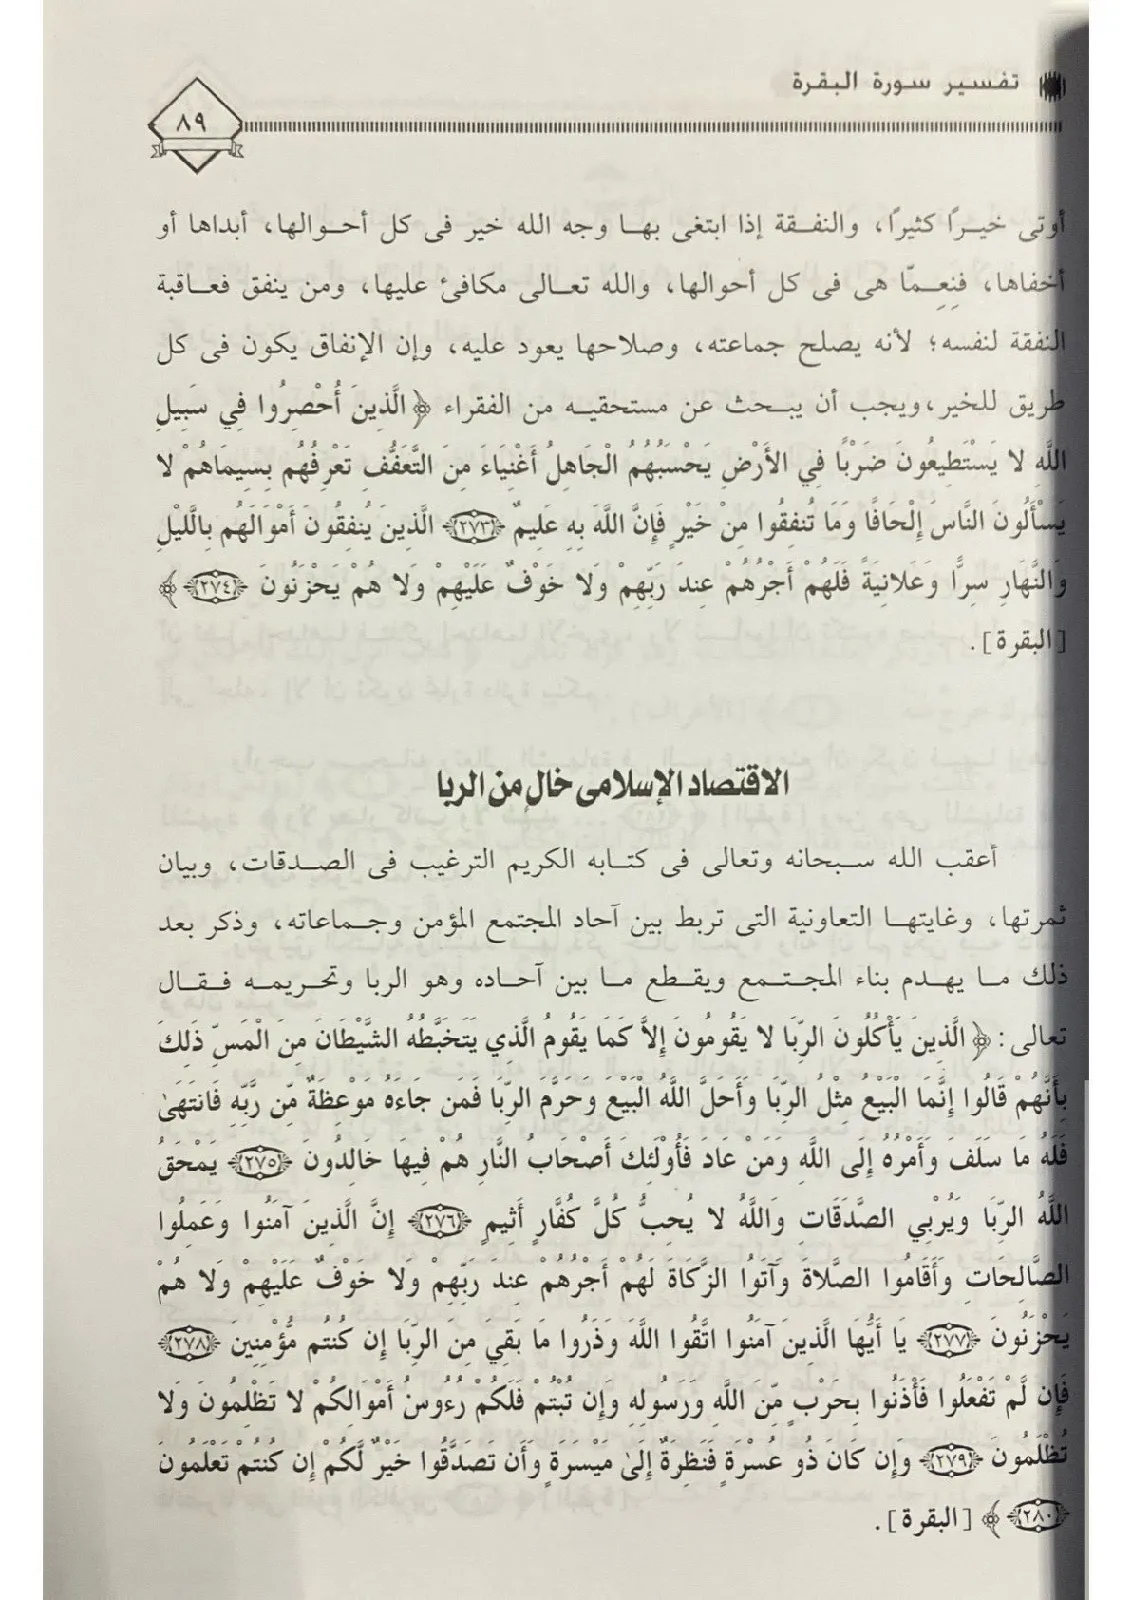 تفسير سورة البقرة
٨٩
أوتى خيرًا كثيرًا، والنفقة إذا ابتغى بها وجه الله خير فى كل أحوالها، أبداها أو
أخفاها، فنِعِمّا هى فى كل أحوالها، والله تعالى مكافئ عليها، ومن ينفق فعاقبة
النفقة لنفسه؛ لأنه يصلح جماعته، وصلاحها يعود عليه، وإن الإنفاق يكون فى كل
طريق للخير، ويجب أن يبحث عن مستحقيه من الفقراء ﴿ الَّذِينَ أُحْصِرُوا فِي سَبِيلِ
اللَّهِ لا يَسْتَطِيعُونَ ضَرْبًا فِي الأَرْضِ يَحْسَبُهُمُ الْجَاهِلُ أَغْنِيَاءَ مِنَ التَّعَفُّفِ تَعْرِفُهُم بِسِيمَاهُمْ لا
يَسْأَلُونَ النَّاسَ إِلْحَافًا وَمَا تُنفِقُوا مِنْ خَيْرٍ فَإِنَّ اللَّهَ بِهِ عَلِيمٌ ﴿٢٧٣﴾ الَّذِينَ يُنفِقُونَ أَمْوَالَهُم بِاللَّيْلِ
وَالنَّهَارِ سِرًّا وَعَلانِيَةً فَلَهُمْ أَجْرُهُمْ عِندَ رَبِّهِمْ وَلا خَوْفٌ عَلَيْهِمْ وَلا هُمْ يَحْزَنُونَ ﴿٢٧٤﴾ ﴾
[البقرة].
الاقتصاد الإسلامى خالٍ من الربا
أعقب الله سبحانه وتعالى فى كتابه الكريم الترغيب فى الصدقات، وبيان
ثمرتها، وغايتها التعاونية التى تربط بين آحاد المجتمع المؤمن وجماعاته، وذكر بعد
ذلك ما يهدم بناء المجتمع ويقطع ما بين آحاده وهو الربا وتحريمه فقال
تعالى: ﴿ الَّذِينَ يَأْكُلُونَ الرِّبَا لا يَقُومُونَ إِلاَّ كَمَا يَقُومُ الَّذِي يَتَخَبَّطُهُ الشَّيْطَانُ مِنَ الْمَسِّ ذَلِكَ
بِأَنَّهُمْ قَالُوا إِنَّمَا الْبَيْعُ مِثْلُ الرِّبَا وَأَحَلَّ اللَّهُ الْبَيْعَ وَحَرَّمَ الرِّبَا فَمَن جَاءَهُ مَوْعِظَةٌ مِّن رَّبِّهِ فَانتَهَىٰ
فَلَهُ مَا سَلَفَ وَأَمْرُهُ إِلَى اللَّهِ وَمَنْ عَادَ فَأُوْلَئِكَ أَصْحَابُ النَّارِ هُمْ فِيهَا خَالِدُونَ ﴿٢٧٥﴾ يَمْحَقُ
اللَّهُ الرِّبَا وَيُرْبِي الصَّدَقَاتِ وَاللَّهُ لا يُحِبُّ كُلَّ كَفَّارٍ أَثِيمٍ ﴿٢٧٦﴾ إِنَّ الَّذِينَ آمَنُوا وَعَمِلُوا
الصَّالِحَاتِ وَأَقَامُوا الصَّلاةَ وَآتَوُا الزَّكَاةَ لَهُمْ أَجْرُهُمْ عِندَ رَبِّهِمْ وَلا خَوْفٌ عَلَيْهِمْ وَلا هُمْ
يَحْزَنُونَ ﴿٢٧٧﴾ يَا أَيُّهَا الَّذِينَ آمَنُوا اتَّقُوا اللَّهَ وَذَرُوا مَا بَقِيَ مِنَ الرِّبَا إِن كُنتُم مُّؤْمِنِينَ ﴿٢٧٨﴾
فَإِن لَّمْ تَفْعَلُوا فَأْذَنُوا بِحَرْبٍ مِّنَ اللَّهِ وَرَسُولِهِ وَإِن تُبْتُمْ فَلَكُمْ رُءُوسُ أَمْوَالِكُمْ لا تَظْلِمُونَ وَلا
تُظْلَمُونَ ﴿٢٧٩﴾ وَإِن كَانَ ذُو عُسْرَةٍ فَنَظِرَةٌ إِلَىٰ مَيْسَرَةٍ وَأَن تَصَدَّقُوا خَيْرٌ لَّكُمْ إِن كُنتُمْ تَعْلَمُونَ
﴿٢٨٠﴾ ﴾ [البقرة].